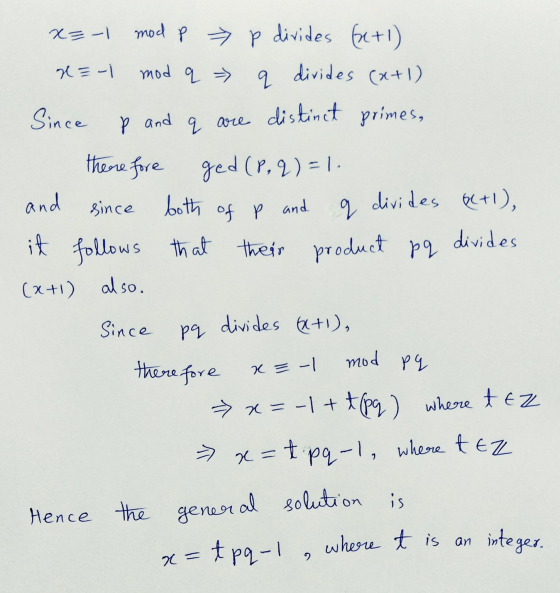 x ≡ -1 mod p ⇒ p divides (x+1)
x ≡ -1 mod q ⇒ q divides (x+1)
Since p and q are distinct primes,
therefore gcd(p,q) = 1.
and since both of p and q divides (x+1),
it follows that their product pq divides
(x+1) also.
Since pq divides (x+1),
therefore x ≡ -1 mod pq
⇒ x = -1 + t(pq) where t ∈ ℤ
⇒ x = t pq - 1, where t ∈ ℤ
Hence the general solution is
x = t pq - 1 , where t is an integer.